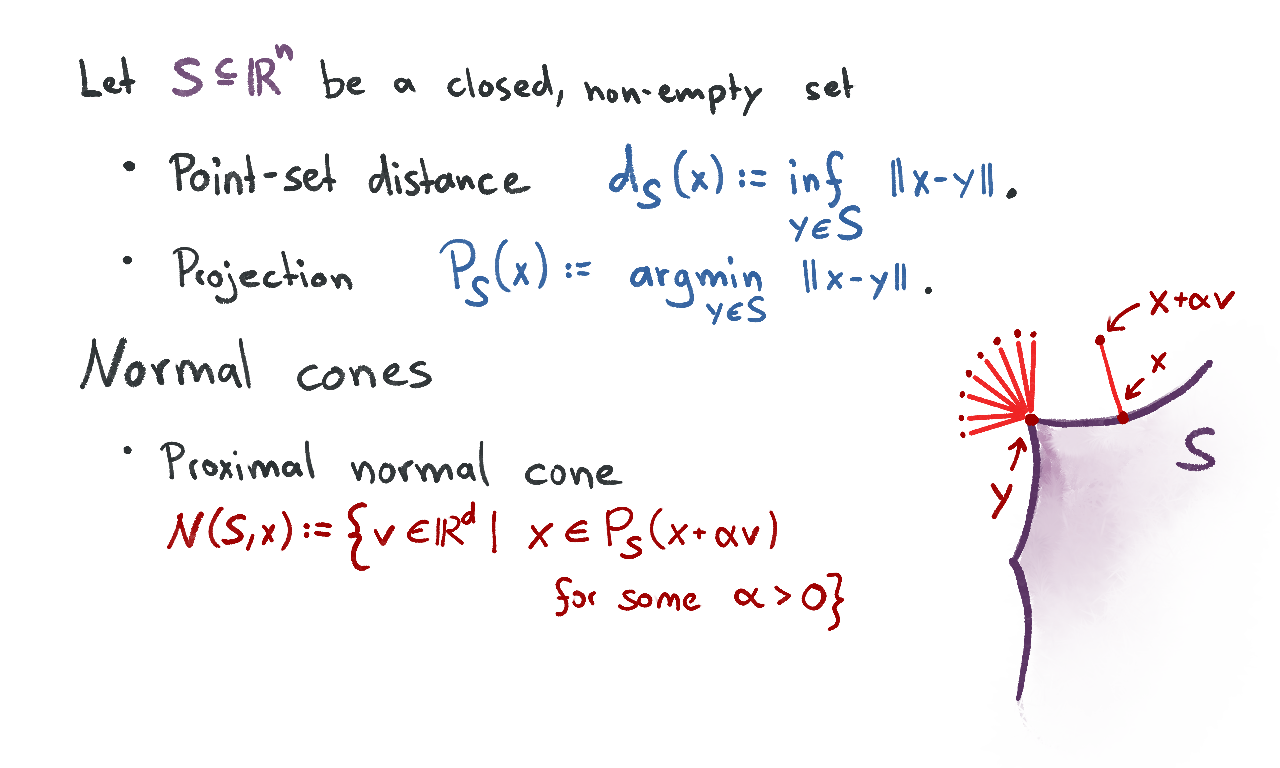 Let S ⊆ ℝⁿ be a closed, non-empty set
• Point-set distance d_S(x) := inf_{y∈S} ‖x-y‖.
• Projection P_S(x) := argmin_{y∈S} ‖x-y‖.
Normal cones
• Proximal normal cone
N(S,x) := {v ∈ ℝᵈ | x ∈ P_S(x+αv)
for some α > 0}
x+αv
x
S
y